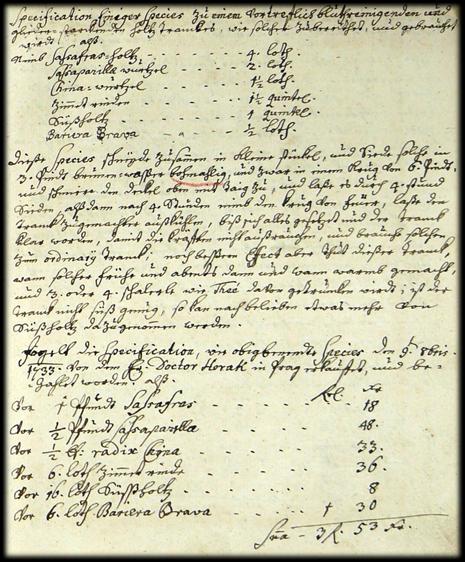 Specification Einiger Species zu einem vortreflich blutreinigenden und
glieder-stärckenden holtz tranckes, wie solcher zubereithet, und gebrauchet
wirdt, alß.
Nimb Sassafras-holtz 4. loth
Sassaparillæ wurtzel 2. loth.
China-wurtzel 1½ loth.
Zimet rinden 1½ quintel.
Süßholtz 1 quintel.
Bariera Brava ½ loth.
dieße Species schneyde zusamen in kleine stückel, und siede solche in
3. Pindt brunen-wasser, und zwar in einem Krug von 6. Pindt,
und schmiere den dekel oben mit Taig zu, und laße es durch 4. stund
Sieden, alßdann nach 4. Stunden nimb den krug von feuer, laße den
tranck zugemachter außkühlen, biß sich alles gesetzet und der tranck
klar worden, damit die kräfften nicht außrauchen, und brauche solchen
zum ordinary tranck: noch bessern Effect aber thut dießer tranck,
wann solcher frühe und abents dann und wann warmb gemacht,
und 3. oder 4. schalerle wie Thee davon getruncken wirdt; ist der
tranck nicht süeß genug, so kan nach belieben etwas mehr von
Süßholtz dazugenomen werden.
folgt die Specification, wie obigbenente Species den 9. 8bris
1733. von dem H. Doctor Horak in Prag erkaufft, und be-
zahlt worden, alß.
fl. Kr.
Vor 1 Pfundt Sassafras 18
Vor ½ Pfundt Sassaparillæ 48.
Vor ½ radix China 33.
Vor 6. loth Zimmetrinde 36.
Vor 16. loth Süßholtz 8
Vor 6. loth Bariera Brava 1 30
Sua 3 fl. 53 Kr.